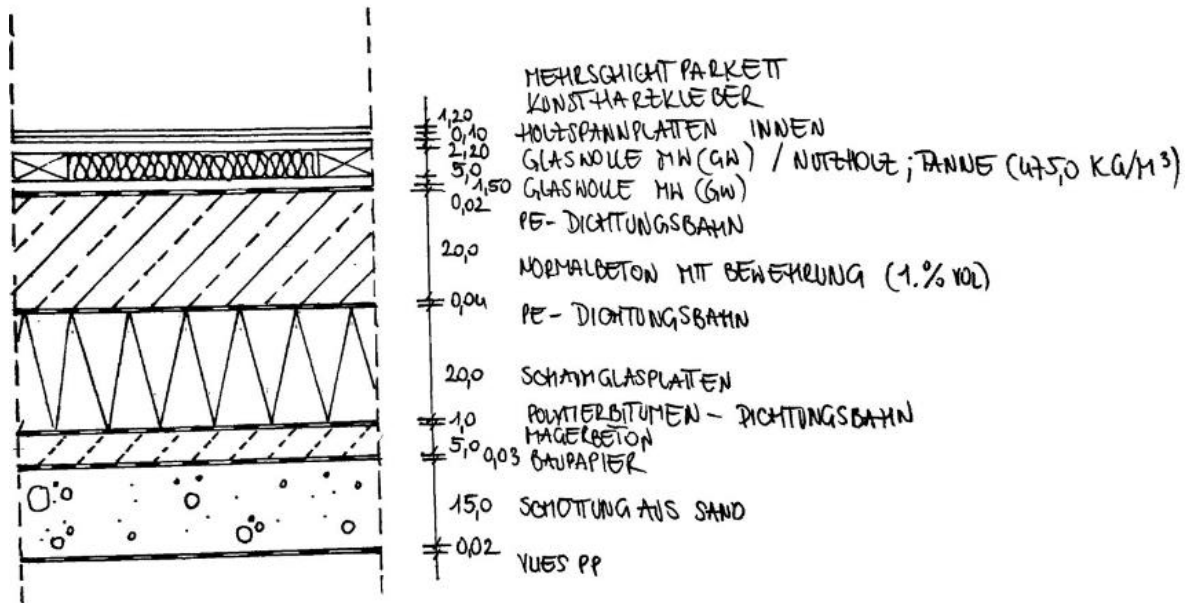 MEHRSCHICHTPARKETT
KUNSTHARZKLEBER
1,20
0,10 HOLZSPANNPLATTEN INNEN
2,20 GLASWOLLE MW (GW) / NUTZHOLZ; TANNE (475,0 KG/M³)
5,0
1,50 GLASWOLLE MW (GW)
0,02
PE-DICHTUNGSBAHN
20,0
NORMALBETON MIT BEWEHRUNG (1.% VOL)
0,04
PE-DICHTUNGSBAHN
20,0 SCHAUMGLASPLATTEN
1,0 POLYMERBITUMEN-DICHTUNGSBAHN
MAGERBETON
5,0 0,03 BAUPAPIER
15,0 SCHÜTTUNG AUS SAND
0,02
VLIES PP